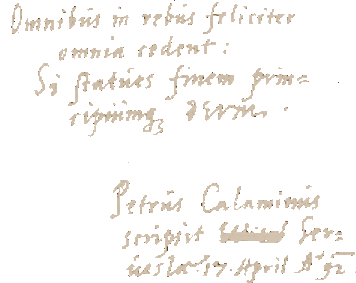 Omnibus in rebus feliciter
omnia cedent:
Si statues finem prin=
cipiumq3 DEVM.
Petrus Calaminus
scripsit Her=
17. April Aº 92